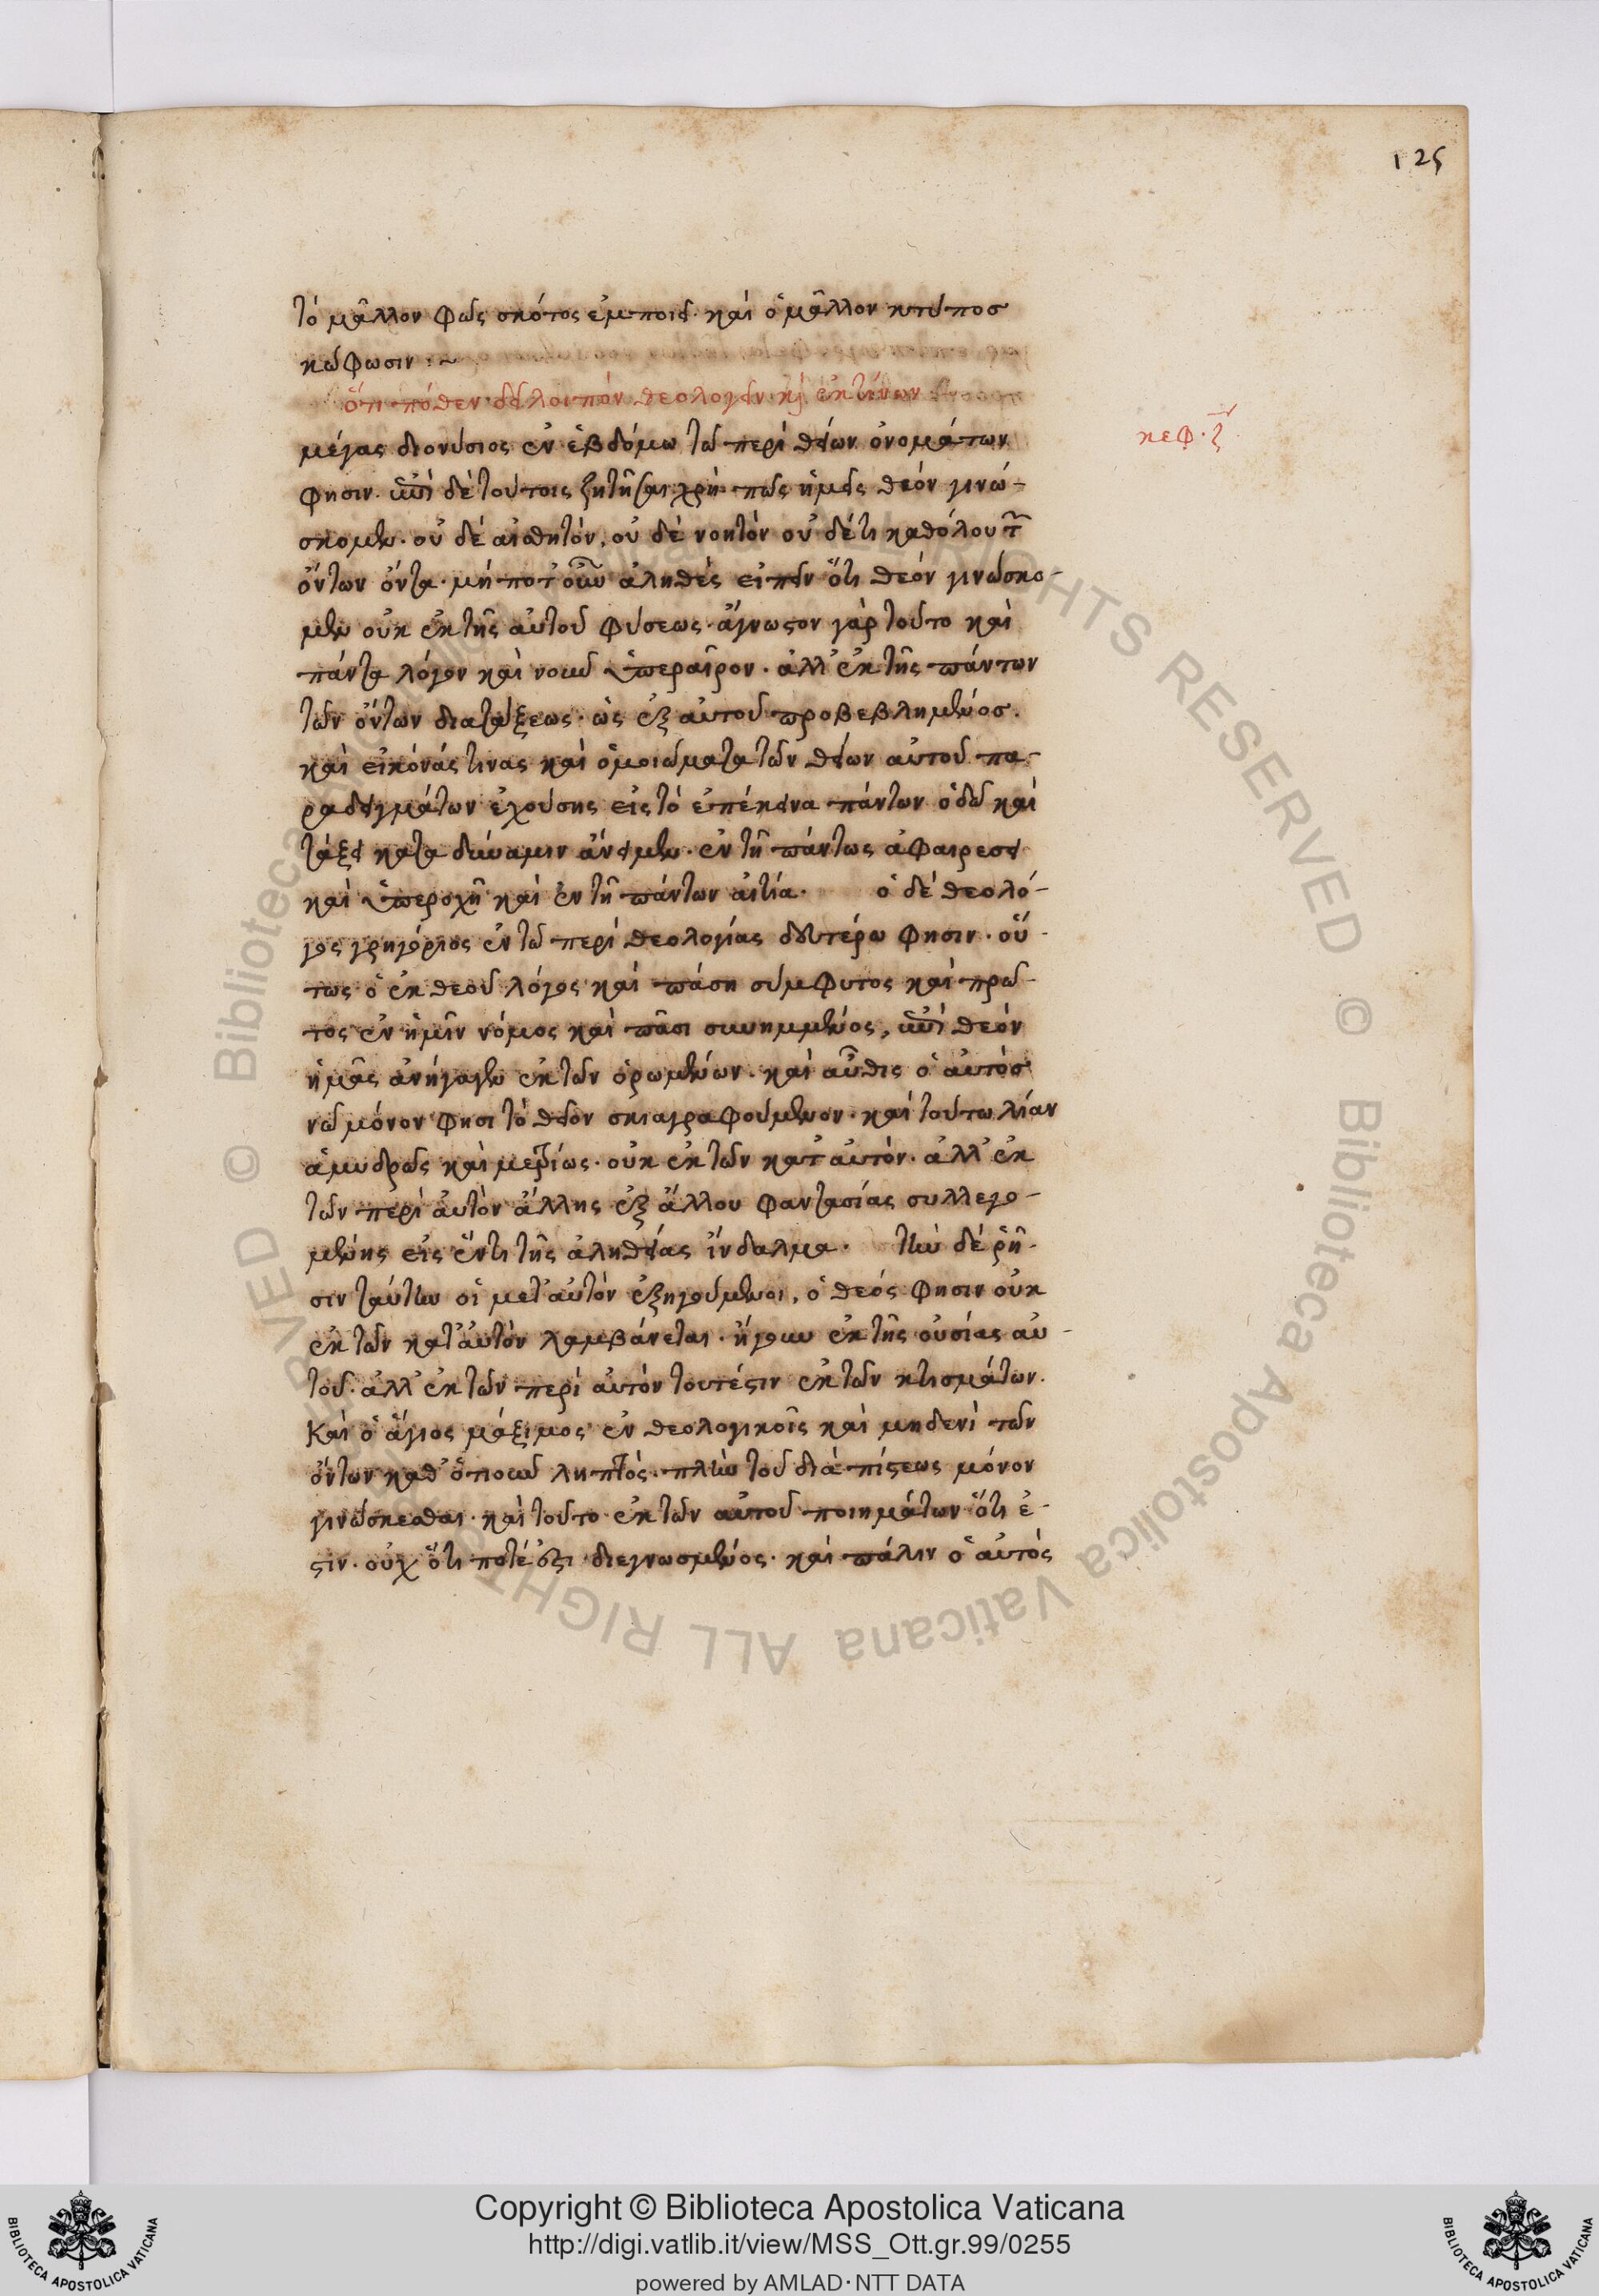 125
τὸ μᾶλλον φῶς σκότος ἐμποιεῖ· καὶ ὁ μᾶλλον κτύπος
κώφωσιν :~
ὅτι πόθεν δεῖ λοιπὸν θεολογεῖν· κ(αὶ) ἐκ τίνων
κεφ. ζ
μέγας διονύσιος ἐν ἑβδόμω τῶ περὶ θείων ὀνομάτων
φησιν. ἐπὶ δὲ τούτοις ζητῆσαι χρὴ πῶς ἡμεῖς θεὸν γινώ-
σκομεν· οὐ δὲ αἰσθητόν, οὐ δὲ νοητὸν οὐ δέ τι καθόλου τ(ῶν)
ὄντων ὄντα· μή ποτ' οὖν ἀληθὲς εἰπεῖν ὅτι θεὸν γινώσκο-
μεν οὐκ ἐκ τῆς αὐτοῦ φύσεως· ἄγνωστον γὰρ τοῦτο καὶ
πάντα λόγον καὶ νοῦν ὑπεραῖρον· ἀλλ' ἐκ τῆς πάντων
τῶν ὄντων διατάξεως· ὡς ἐξ αὐτοῦ προβεβλημένος.
καὶ εἰκόνάς τινας καὶ ὁμοιώματα τῶν θείων αὐτοῦ πα-
ραδειγμάτων ἐχούσης εἰς τὸ ἐπέκεινα πάντων ὁδῶ καὶ
τάξει κατὰ δύναμιν ἄνειμεν· ἐν τῆ πάντως ἀφαιρεσει
καὶ ὑπεροχῆ καὶ ἐν τῆ πάντων αἰτία· ὁ δὲ θεολό-
γος γρηγόριος ἐν τῶ περὶ θεολογίας δευτέρω φησιν· οὕ-
τως ὁ ἐκ θεοῦ λόγος καὶ πάση σύμφυτος καὶ πρῶ-
τος ἐν ἡμῖν νόμος καὶ πᾶσι συνημμένος, ἐπὶ θεὸν
ἡμᾶς ἀνήγαγεν ἐκ τῶν ὁρωμένων· καὶ αὖθις ὁ αὐτός
νῶ μόνον φησι τὸ θεῖον σκιαγραφούμενον· καὶ τούτω λίαν
ἀμυδρῶς καὶ μετρίως· οὐκ ἐκ τῶν κατ' αὐτόν· ἀλλ' ἐκ
τῶν περὶ αὐτὸν ἄλλης ἐξ ἄλλου φαντασίας συλλεγο-
μένης εἰς ἕν τι τῆς ἀληθείας ἴνδαλμα· τὴν δὲ ῥῆ-
σιν ταύτην οἱ μετ' αὐτὸν ἐξηγούμενοι, ὁ θεός φησιν οὐκ
ἐκ τῶν κατ' αὐτὸν λαμβάνεται· ἤγουν ἐκ τῆς οὐσίας αὐ-
τοῦ· ἀλλ' ἐκ τῶν περὶ αὐτὸν τουτέστιν ἐκ τῶν κτισμάτων.
Καὶ ὁ ἅγιος μάξιμος ἐν θεολογικοῖς καὶ μηδενὶ τῶν
ὄντων καθ' ὁτιοῦν ληπτός· πλὴν τοῦ διὰ πίστεως μόνον
γινώσκεσθαι· καὶ τοῦτο ἐκ τῶν αὐτοῦ ποιημάτων ὅτι ἐ-
στιν· οὐχ ὅτι ποτέ ἐστι διεγνωσμένος· καὶ πάλιν ὁ αὐτὸς
© Biblioteca Apostolica Vaticana ALL RIGHTS RESERVED
Copyright © Biblioteca Apostolica Vaticana
http://digi.vatlib.it/view/MSS_Ott.gr.99/0255
powered by AMLAD·NTT DATA
BIBLIOTECA APOSTOLICA VATICANA
BIBLIOTECA APOSTOLICA VATICANA